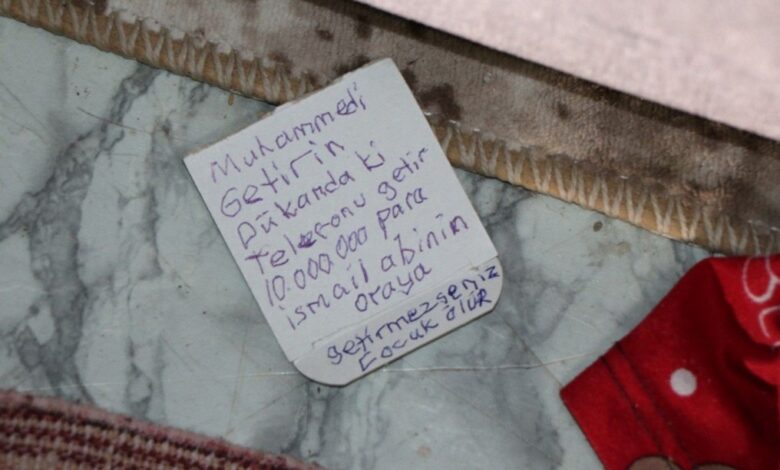 Muhammedi
Getirin
Dükanda ki
Telefonu getir
10.000.000 para
ismail abinin
oraya
getirmezseniz
Çocuk ölür